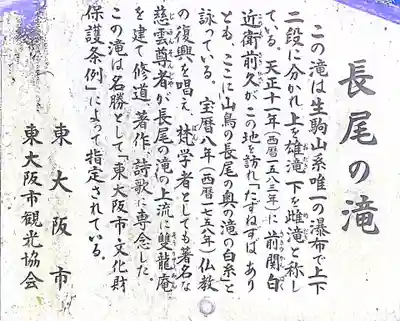 長尾の滝
この滝は生駒山系唯一の瀑布で上下
二段に分かれ上を雄滝、下を雌滝と称し
ている。天正十一年(西暦一五八三年)に前関白
近衛前久がこの地を訪れ「たずねずば あり
とも、ここに山鳥の長尾の奥の滝の白糸」と
詠っている。宝暦八年(西暦一七五八年)仏教
の復興を唱え、梵学者としても著名な
慈雲尊者が長尾の滝の上流に雙龍庵
を建て修道、著作、詩歌に専念した。
この滝は名勝として「東大阪市文化財
保護条例」によって指定されている。
東大阪市
東大阪市観光協会